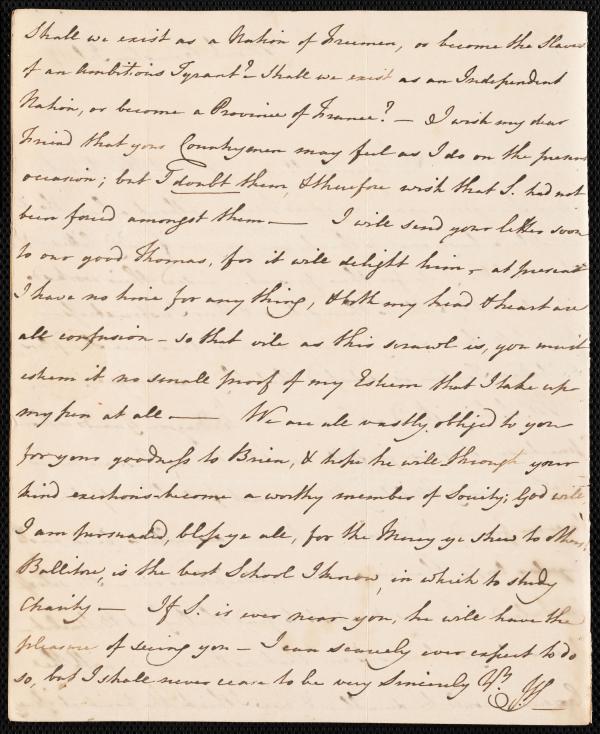 Shall we exist as a Nation of Freemen, or become the Slaves
of an Ambitious Tyrant? Shall we exist as an Independent
Nation, or become a Province of France? — I wish my dear
Friend that your Countrymen may feel as I do on the present
occasion; but I doubt them, & therefore wish that S. had not
been forced amongst them — I will send your letter soon
to our good Thomas, for it will delight him, at present
I have no time for any thing, & both my head & heart are
all confusion — so that vile as this scrawl is, you must
esteem it no small proof of my Esteem that I take up
my pen at all — We are all vastly obliged to you
for your goodness to Brien, & hope he will through your
kind exertions become a worthy member of Society; God will
I am persuaded, bless ye all, for the Mercy ye shew to others,
Ballitore, is the best School I know, in which to study
Charity — If S. is ever near you, he will have the
pleasure of seeing you — I can scarcely ever expect to do
so, but I shall never cease to be very Sincerely Yrs